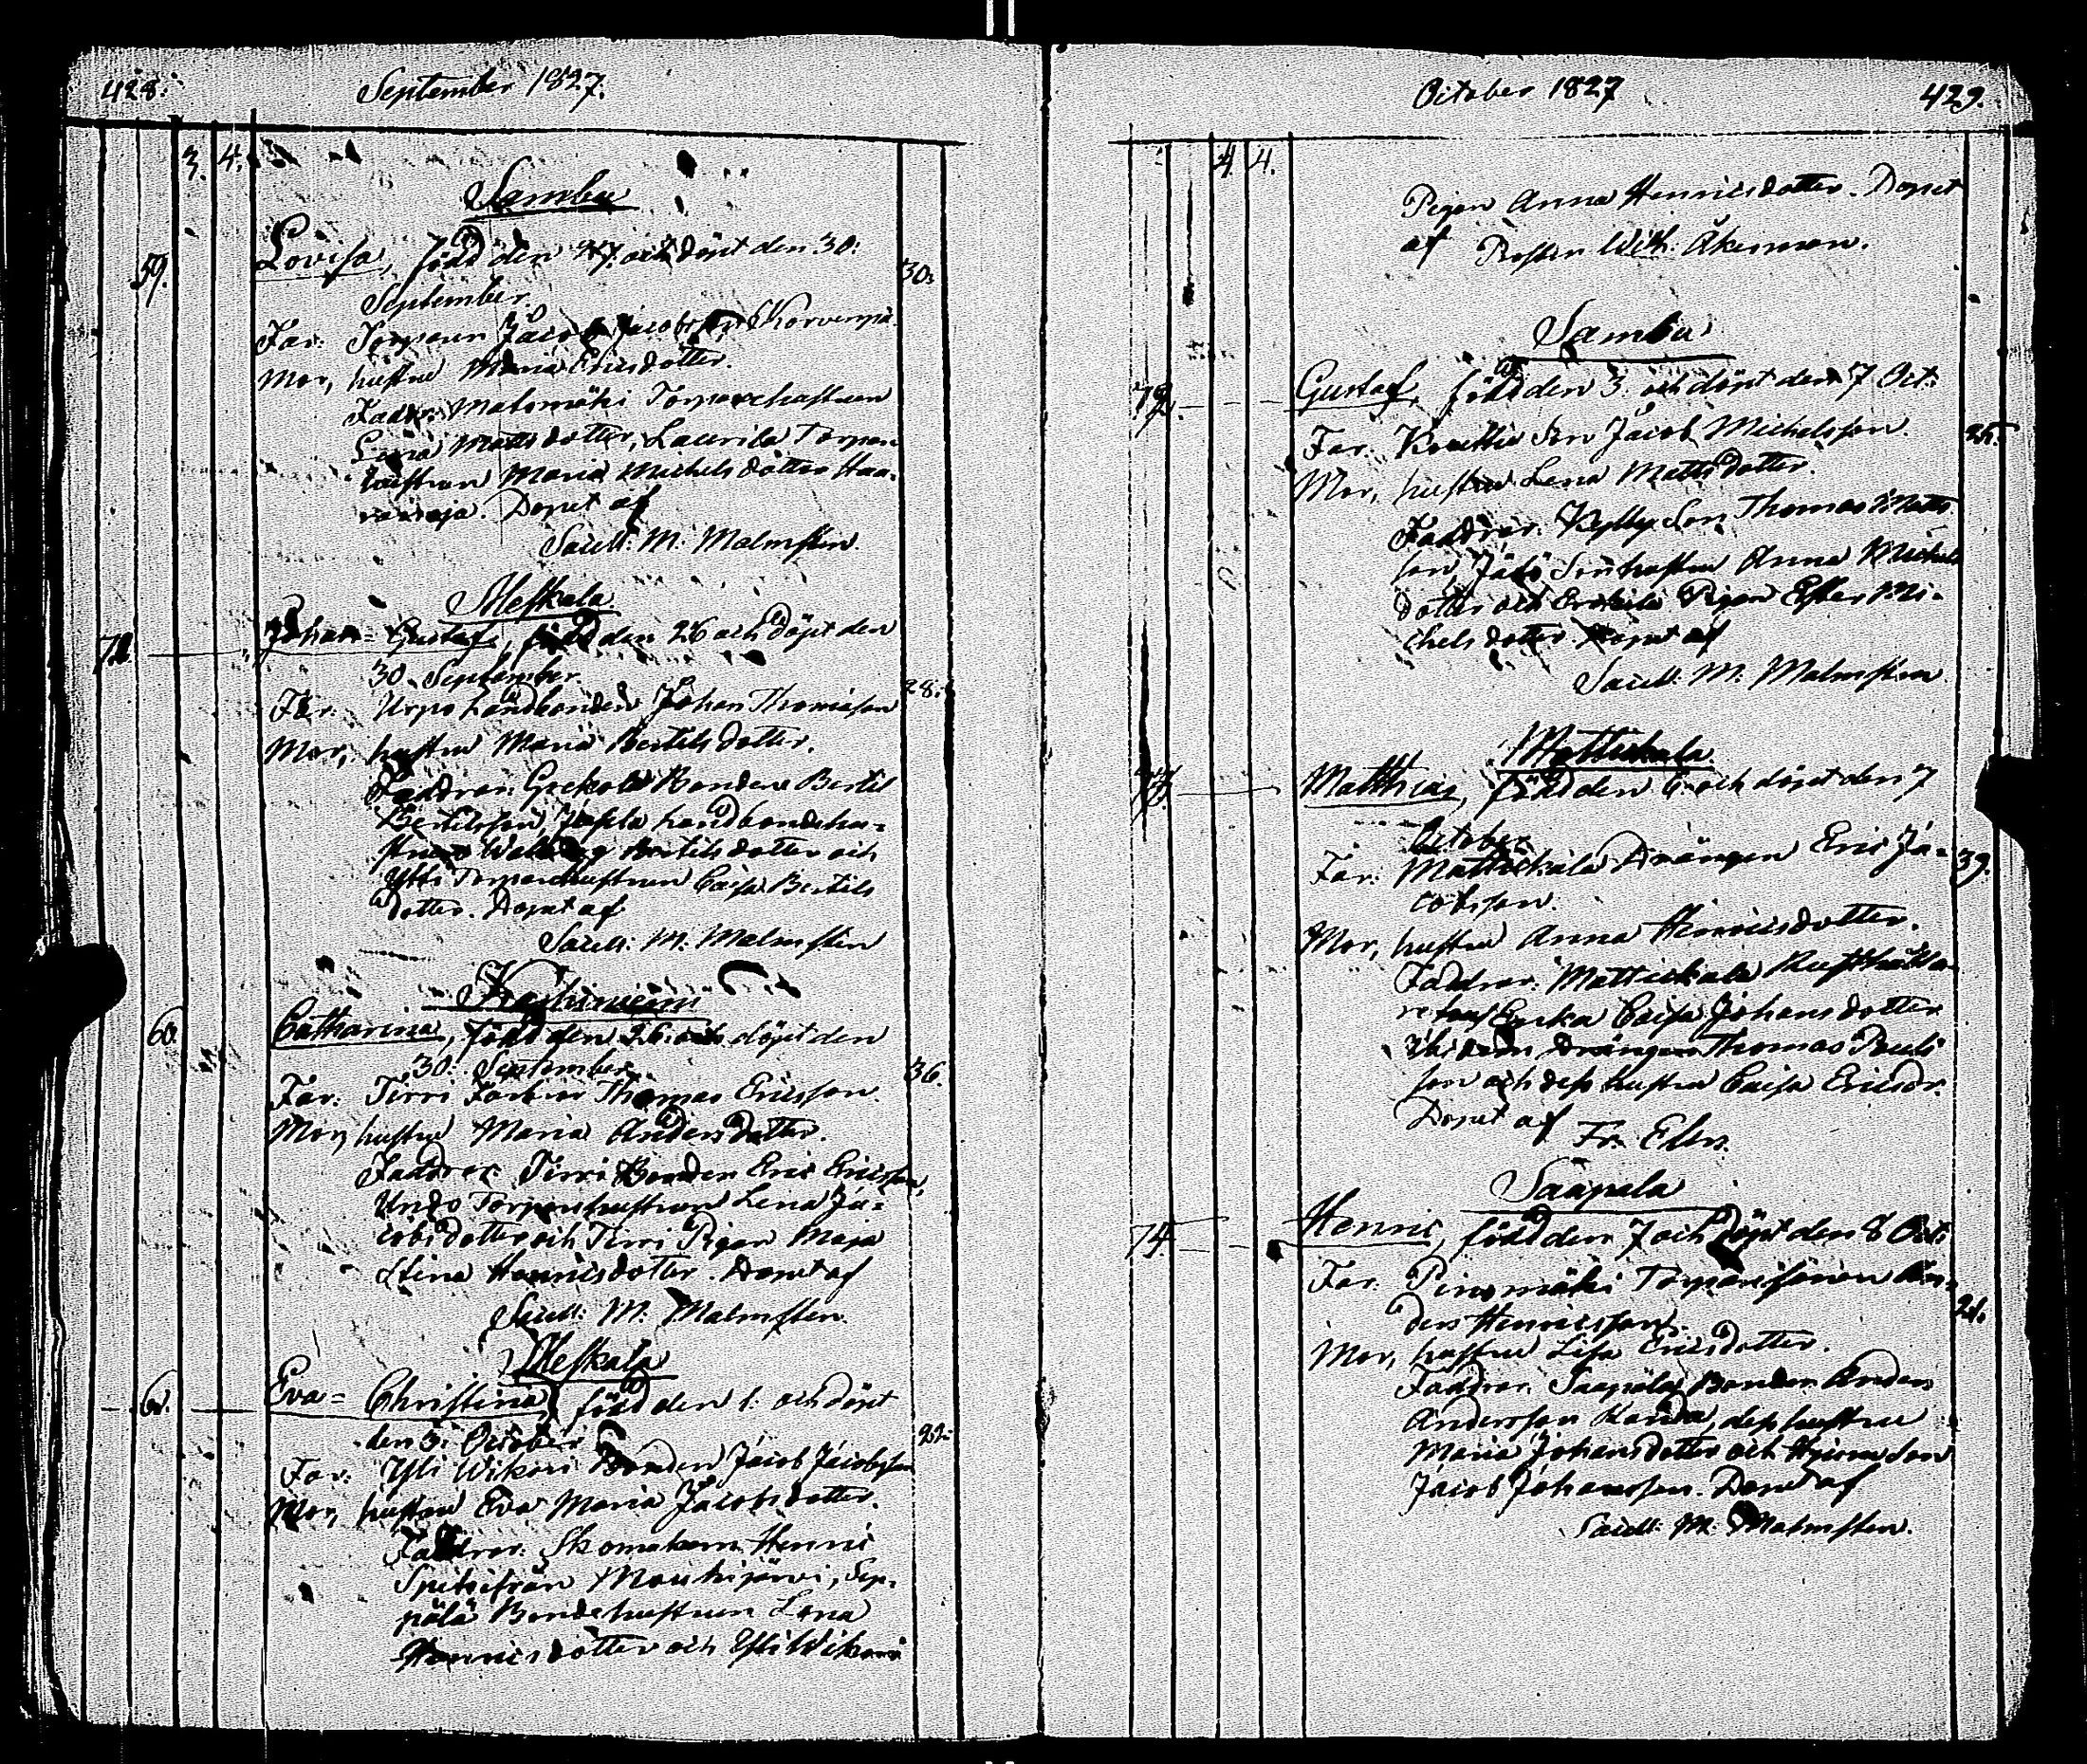 428.
September 1827.
3. 4.
Sambu
59.
Lovisa, född den 27. och döpt den 30.
30.
September.
Far: Torparen Jacob Jacobsson Korvenpä.
Mor, hustru Maria Ericsdotter.
Faddr: Matomäki Torparehustrun
Lena Mattsdotter, Laurila Torpare
hustrun Maria Michelsdotter Haa-
. Döpnt af
Sacell: M: Malmsten.
Meskala.
72.
Johan = Gustaf, född den 26 och döpt den
30. September.
28.
Far: Urpo Landbonden Johan Thomasson
Mor, hustru Maria Bertilsdotter.
Faddrar: Grekola Bonden Bertil
Bertilsson, landbondehu-
strun Bertilsdotter och
Ylli Torparehustrun Caisa Bertils
dotter. Döpnt af
Sacell: M: Malmsten
Koskiniemi
60.
Catharina, född den 26. och döpt den
30. September.
36.
Far: Tirri Thomas Ericsson.
Mor, hustru Maria Andersdotter.
Faddrar: Tirri Bonden Eric Ericsson,
Undo Torparehustrun Lena Ja-
cobsdotter och Tirri Pigan Maja
Stina Henricsdotter. Döpnt af
Sacell: M: Malmsten.
Meskala
61.
Eva = Christina, född den 1. och döpt
den 3. October
22.
Far: Yli Wikari Bonden Jacob Jacobsson
Mor, hustru Eva Maria Jacobsdotter.
Faddrar: Skomakaren Henric
Spets ifrån Mouhijärvi, Sep-
pälä Bondehustrun Lena
Henricsdotter och Yli Wikari
October 1827
429.
4. 4.
Pigan Anna Henricsdotter. Döpnt
af Prosten With: Åkerman.
Sambu
Gustaf, född den 3. och döpt den 7 Oct:
25.
Far: Son Jacob Michelsson.
Mor, hustru Lena Mattsdotter.
Faddrar: Son Thomas Matts
son, Sonhustru Anna Michels
dotter och Pigan Ester Mi-
chelsdotter. Döpnt af
Sacell: M: Malmsten.
Mattiskala.
Matthias, född den 6. och döpt den 7
October.
39.
Far: Mattiskala Drängen Eric Ja-
cobsson.
Mor, hustru Anna Henricsdotter.
Faddrar: Mattiskala Rusthålla-
re Enka Caisa Johansdotter
Ibidem Drängen Thomas Pauls
son och dess hustru Caisa Ericsdr.
Döpnt af Fr. Elers.
Saapala
74
Henric, född den 7 och döpt den 8 Oct:
Far: Pinomäki Torparesonen An-
24.
ders Henricsson.
Mor, hustru Lisa Ericsdotter.
Faddrar: Saapala Bonden Anders
Andersson, dess hustru
Maria Johansdotter och Son
Jacob Johansson. Döpnt af
Sacell: M: Malmsten.